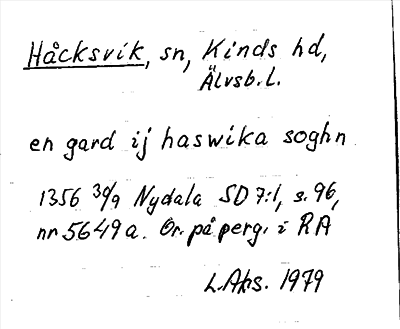 Håcksvik, sn, Kinds hd,
Älvsb.l.
en gard ij haswika soghn
1356 30/9 Nydala SD 7:1, s. 96,
nr 5649a. Or. på perg. i RA
L.Ahs. 1979